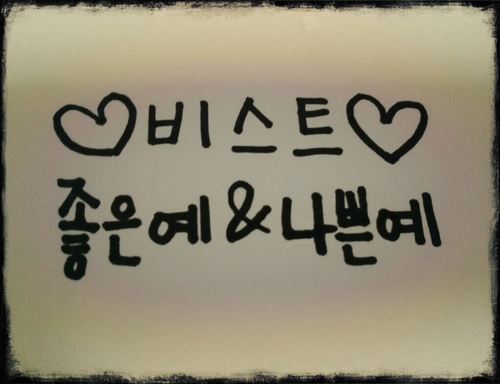 ♡비스트♡
좋은예&나쁜예